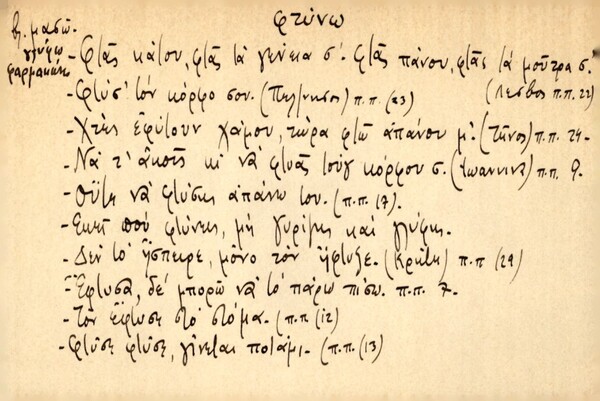 φτύνω
βλ. μασῶ.
γλύφω
φαρμακώνω
- Φτᾶς κάτου, φτᾶς τὰ γένεια σ'. Φτᾶς πάνου, φτᾶς τὰ μοῦτρα σ.
(Λέσβος π.π. 22)
- Φτύσ' τὸν κόρφο σου. (Πελ/νησος) π.π. (23)
- Χτὲς ἐφίλουν χάμου, τώρα φτῶ ἀπάνου μ'. (Τῆνος) π.π. 24.
- Νὰ τ' ἀκοῦς κὶ νὰ φτυᾶς τοὺγ κόρφου σ. (Ἰωάννινα) π.π. 9.
- Οὔτε νὰ φτύσῃς ἀπάνω του. (π.π. 17).
- Ἐκεῖ ποὺ φτύνεις, μὴ γυρίζῃς καὶ γλύφῃς.
- Δὲν τὸ ἤσπειρε, μόνο τὸν ἤφτυξε. (Κρήτη) π.π (29)
- Ἔφτυσα, δὲ μπορῶ νὰ τὸ πάρω πίσω. π.π. 7.
- Τὸν ἔφτυσε στὸ στόμα. (π.π (12)
- Φτῦσε φτῦσε, γίνεται ποτάμι. (π.π. (13)